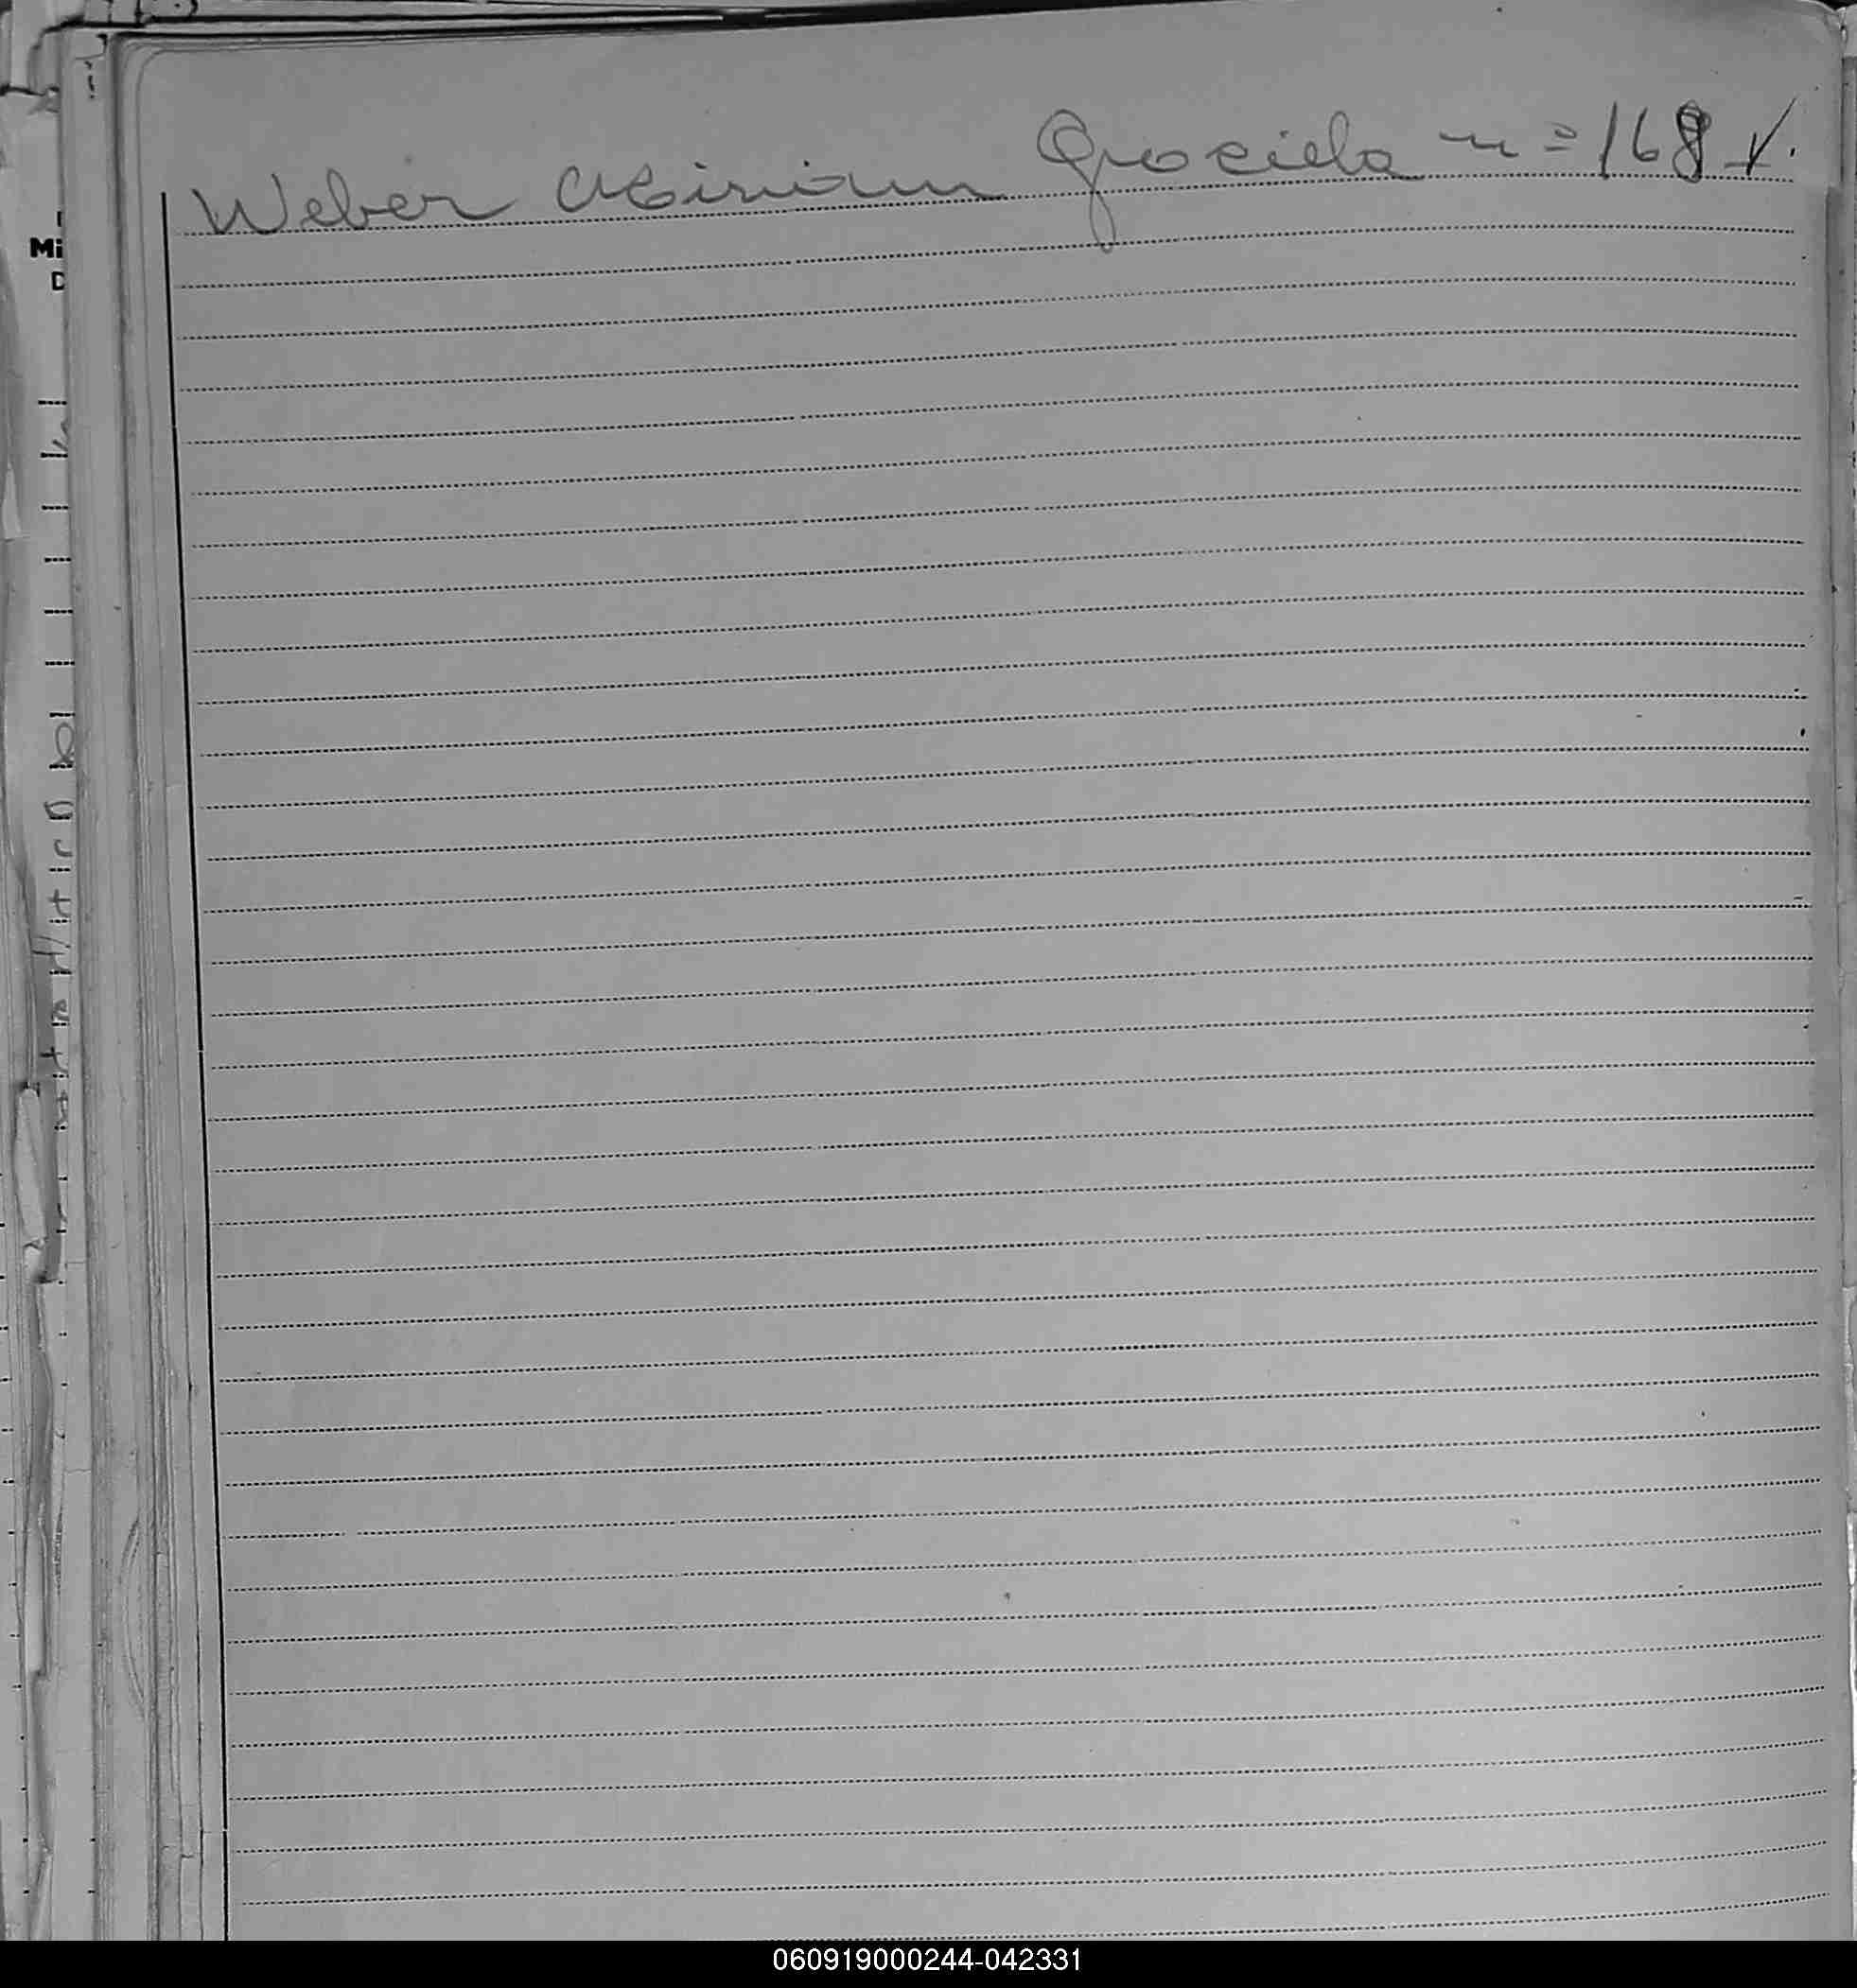 Weber Miriam Graciela n = 168 V.
Mi
D
060919000244-042331